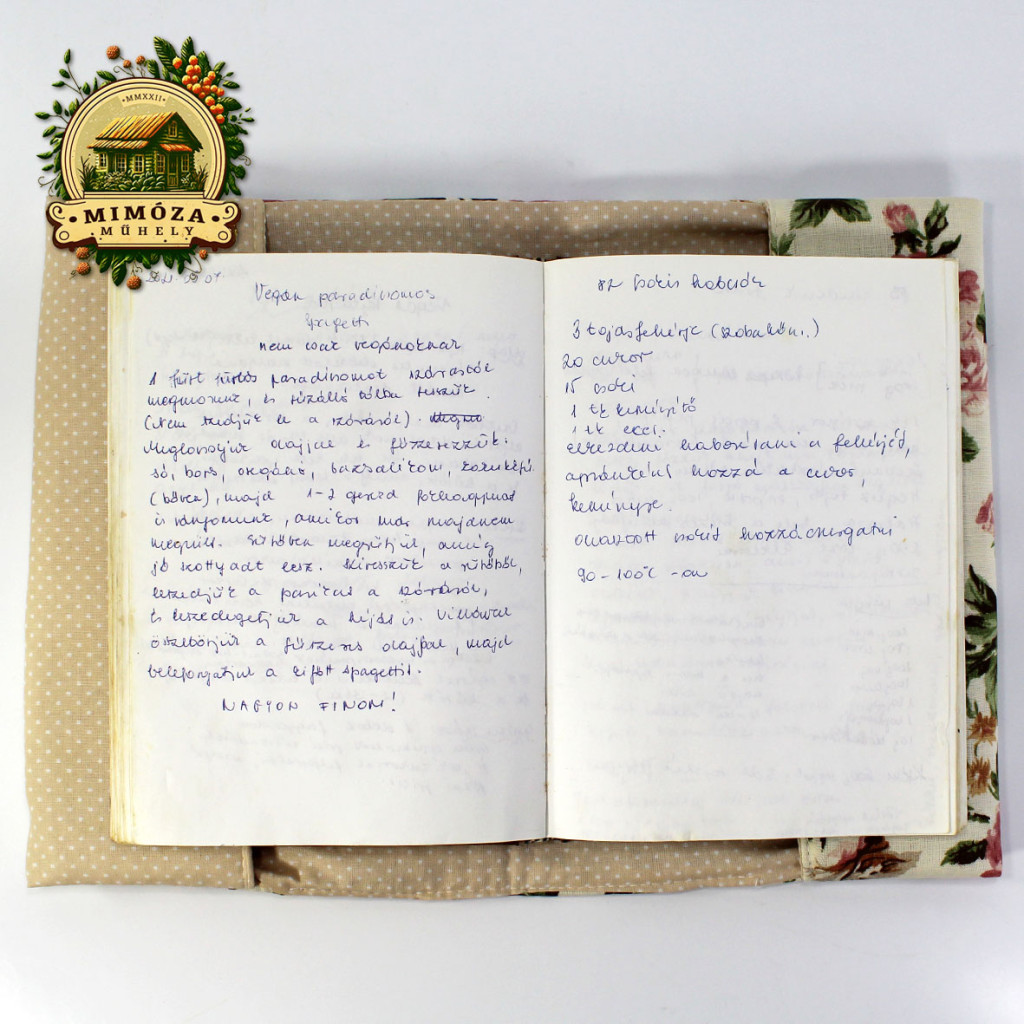 MMXXII
MIMÓZA
MŰHELY
Vegán paradicsomos
spagetti
nem csak vegánoknak
1 fürt fürtös paradicsomot szárastól
megmosunk, és tűzálló tálba tesszük.
(Nem szedjük le a szárásról).
Meglocsoljuk olajjal és fűszerezzük.
só, bors, oregánó, bazsalikom,
(bőven), majd 1-2 gerezd fokhagymát
is rányomunk, amikor már majdnem
megsült. Sütőben megsütjük, amíg
jó kottyadt lesz. Kivesszük a sütőből,
leszedjük a paricsot a szárásról,
és leszedegetjük a héját is. Villával
összetörjük a fűszeres olajjal, majd
beleforgatjuk a kifőtt spagettit.
NAGYON FINOM!
82 csokis habcsók
3 tojásfehérje (szobahőm.)
20 cukor
15 csoki
1 tk keményítő
1 tk ecet.
elkezdeni habosítani a fehérjét,
apránként hozzá a cukor,
keményre.
olvasztott csokit hozzácsurgatni
90-100°C -on